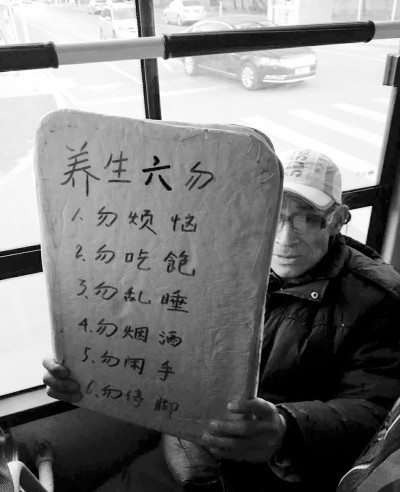 养生六勿
1. 勿烦恼
2. 勿吃飽
3. 勿乱睡
4. 勿烟酒
5. 勿闲手
6. 勿停脚